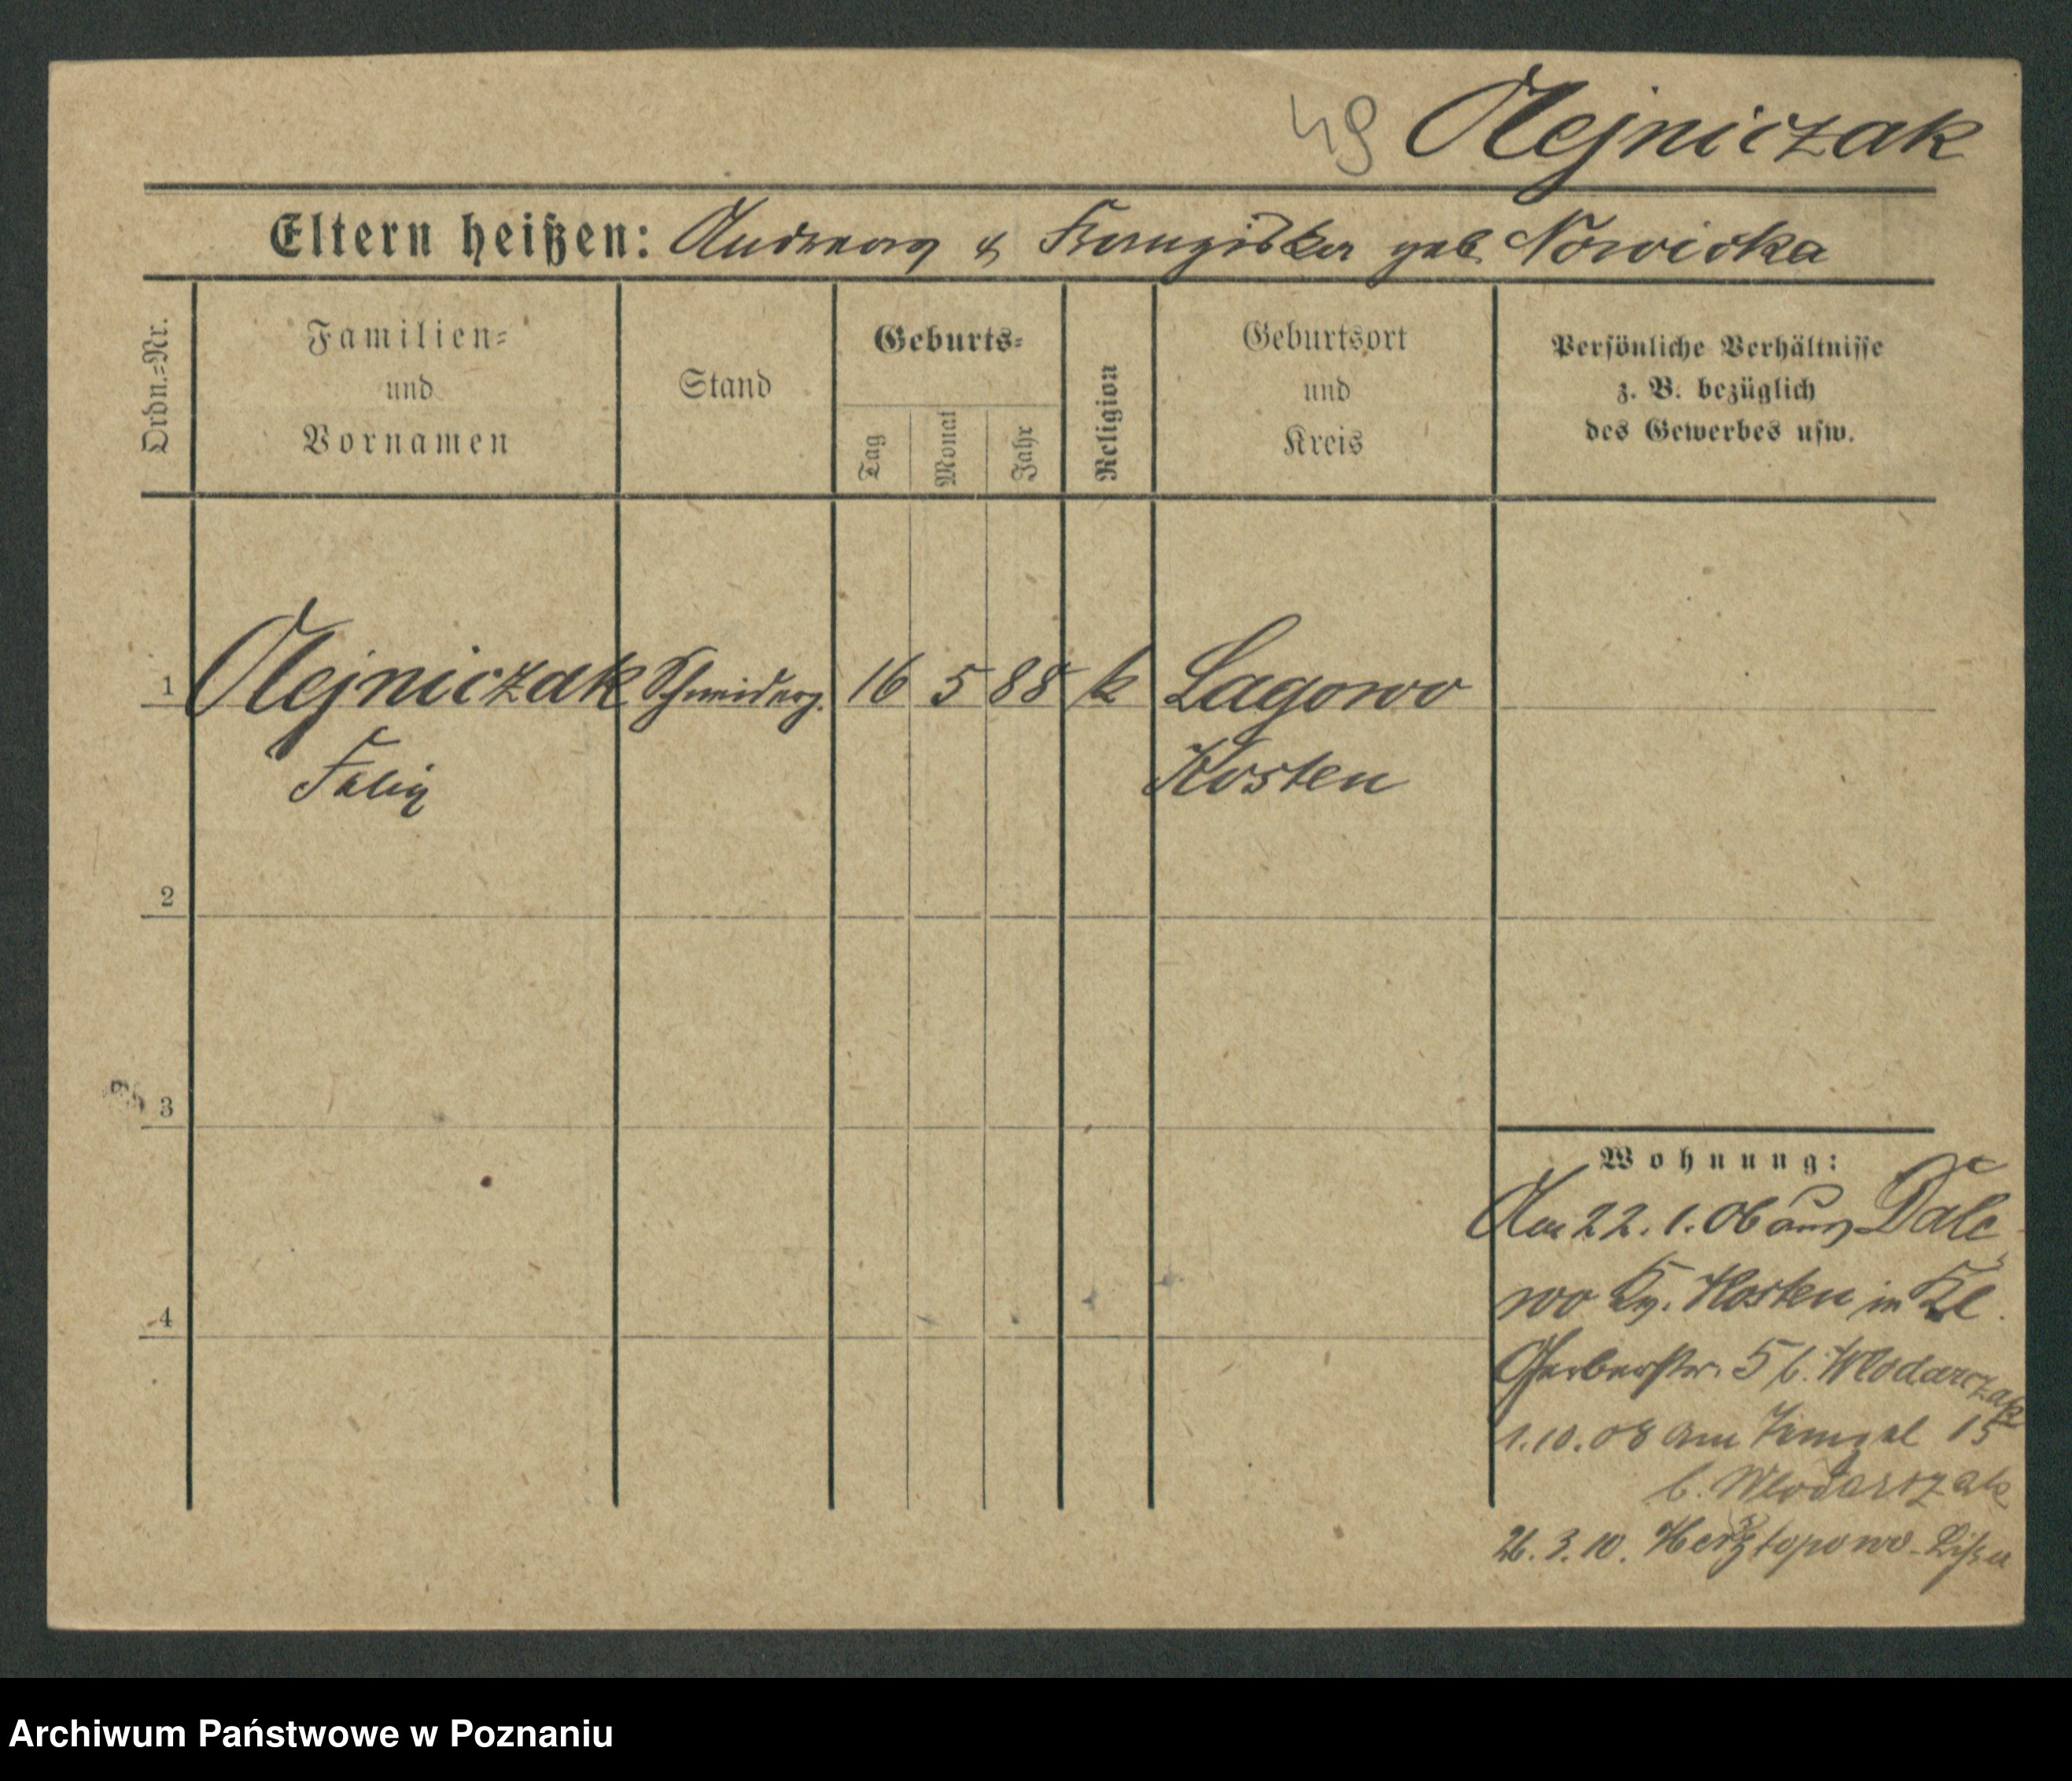 49 Olejniczak
Eltern heißen: Andreas & Franziska geb. Nowicka
Ordn.-Nr.
Familien-
und
Vornamen
Stand
Geburts-
Tag
Monat
Jahr
Religion
Geburtsort
und
Kreis
Persönliche Verhältnisse
z. B. bezüglich
des Gewerbes usw.
1 Olejniczak Schneiderg. 16 5 88 k Lagowo
Felix Kosten
2
3
4
Wohnung:
Am 22.1.06 aus Dale
wo Kr. Kosten in Kl.
Gerberstr. 5 b. Wlodarczak
1.10.08 am 15
b. Wlodarczak
26.3.10. Lissa
Archiwum Państwowe w Poznaniu